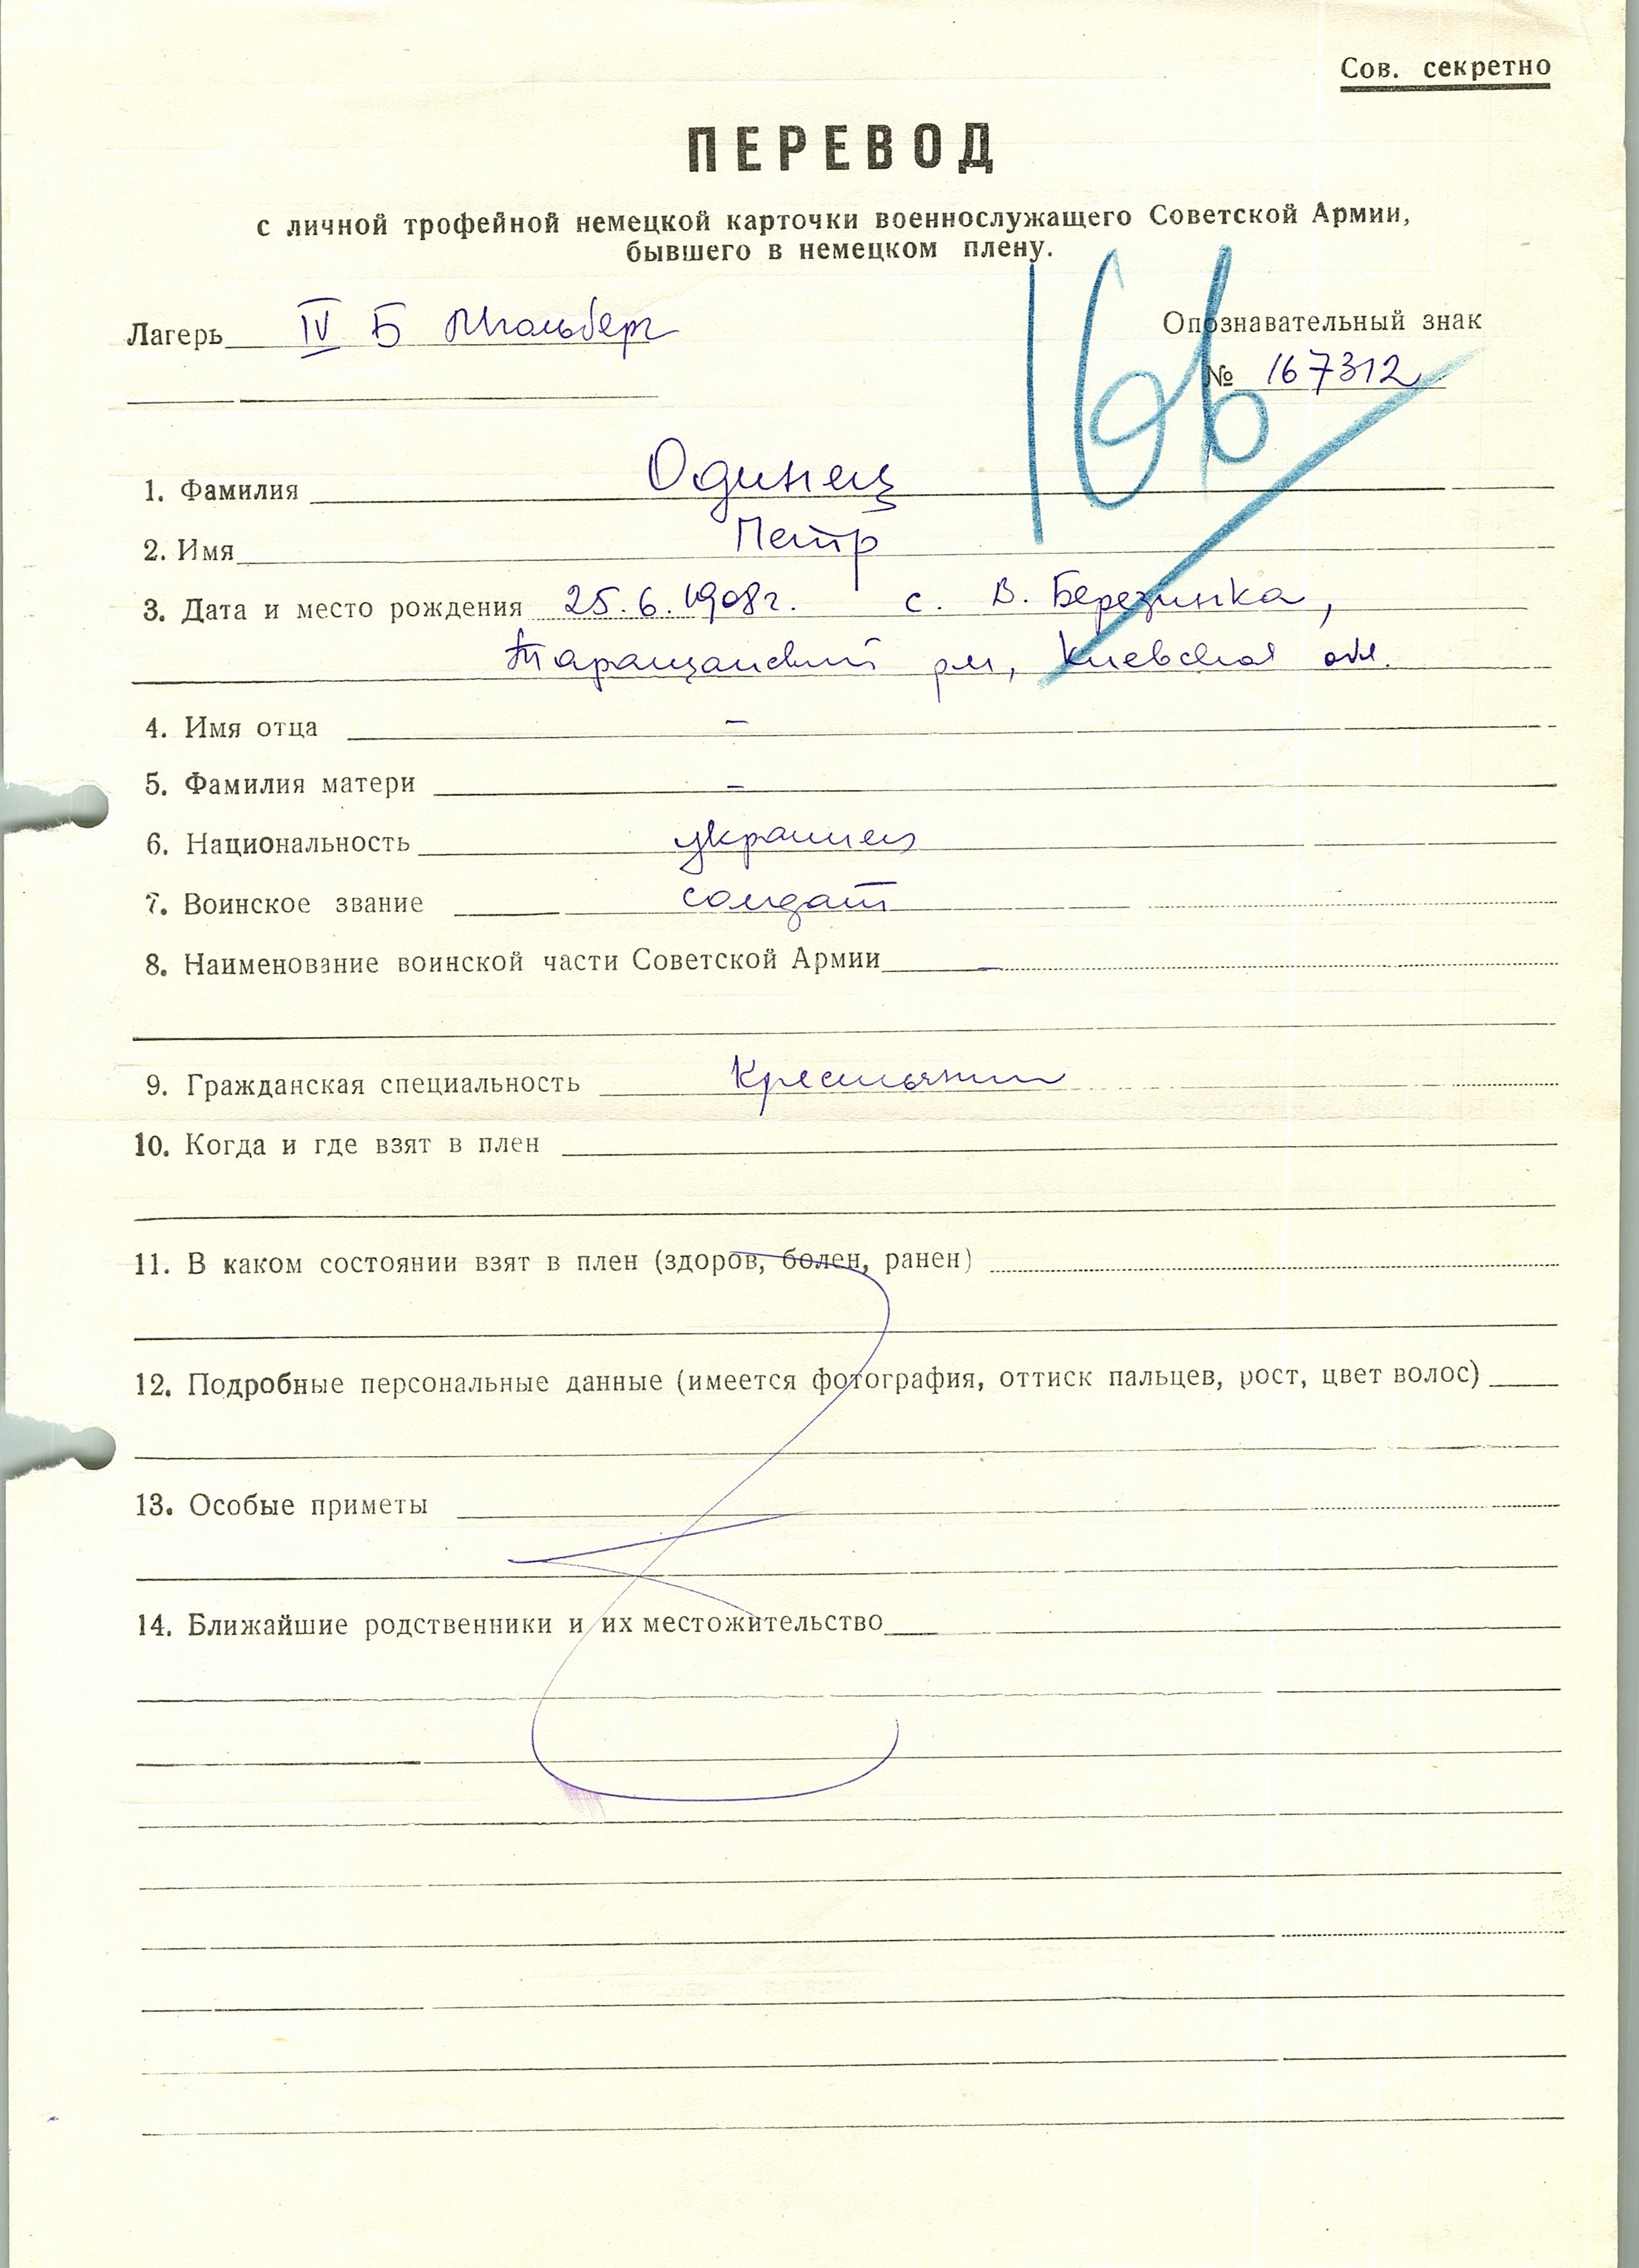 Сов. секретно
ПЕРЕВОД
с личной трофейной немецкой карточки военнослужащего Советской Армии,
бывшего в немецком плену.
Лагерь IV Б Мюльберг
Опознавательный знак
№ 167312
166
1. Фамилия Одинец
2. Имя Петр
3. Дата и место рождения 25.6.1908г. с. В. Березинка,
Таращанский рн, Киевская обл.
4. Имя отца –
5. Фамилия матери –
6. Национальность украинец
7. Воинское звание солдат
8. Наименование воинской части Советской Армии –
9. Гражданская специальность Крестьянин
10. Когда и где взят в плен
11. В каком состоянии взят в плен (здоров, болен, ранен)
12. Подробные персональные данные (имеется фотография, оттиск пальцев, рост, цвет волос)
13. Особые приметы
14. Ближайшие родственники и их местожительство